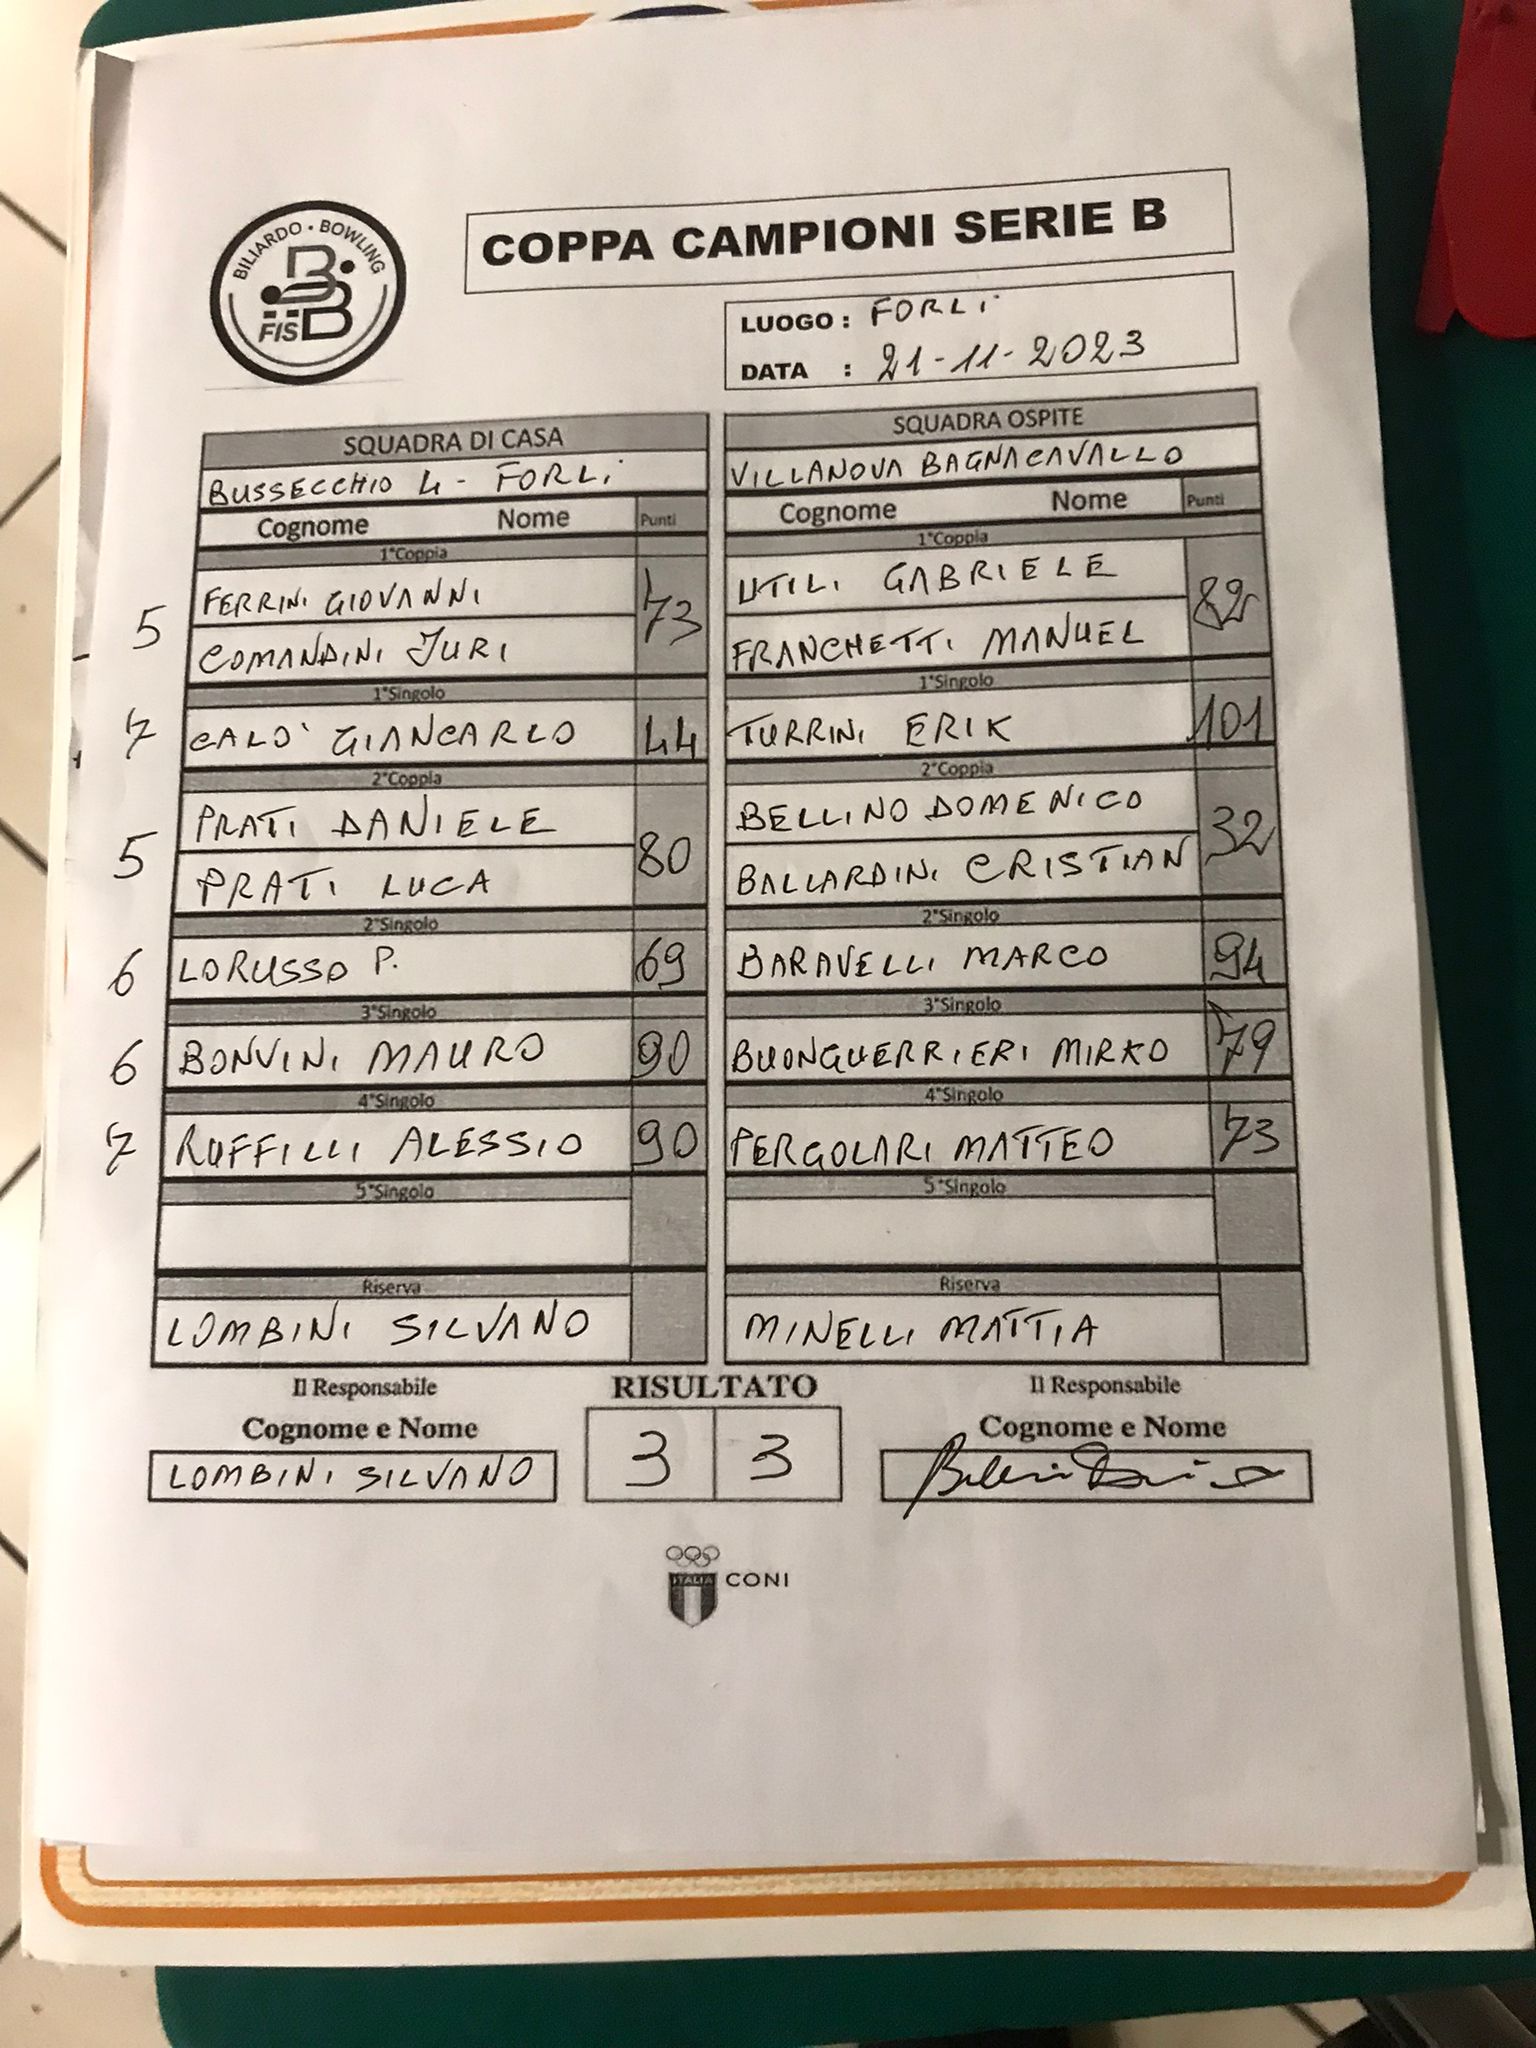 BILIARDO • BOWLING
FISBB
COPPA CAMPIONI SERIE B
LUOGO : FORLI
DATA : 21-11-2023
SQUADRA DI CASA
BUSSECCHIO 4 - FORLI
Cognome Nome Punti
1°Coppia
5 FERRINI GIOVANNI 73
COMANDINI JURI
1°Singolo
7 CALO' GIANCARLO 44
2°Coppia
PRATI DANIELE 80
5 PRATI LUCA
2°Singolo
6 LORUSSO P. 69
3°Singolo
6 BONVINI MAURO 90
4°Singolo
7 RUFFILLI ALESSIO 90
5°Singolo
Riserva
LOMBINI SILVANO
SQUADRA OSPITE
VILLANOVA BAGNACAVALLO
Cognome Nome Punti
1°Coppia
UTILI GABRIELE 82
FRANCHETTI MANUEL
1°Singolo
TURRINI ERIK 101
2°Coppia
BELLINO DOMENICO 32
BALLARDINI CRISTIAN
2°Singolo
BARAVELLI MARCO 94
3°Singolo
BUONGUERRIERI MIRKO 79
4°Singolo
PERGOLARI MATTEO 73
5°Singolo
Riserva
MINELLI MATTIA
Il Responsabile
Cognome e Nome
LOMBINI SILVANO
RISULTATO
3 3
Il Responsabile
Cognome e Nome
ITALIA
CONI